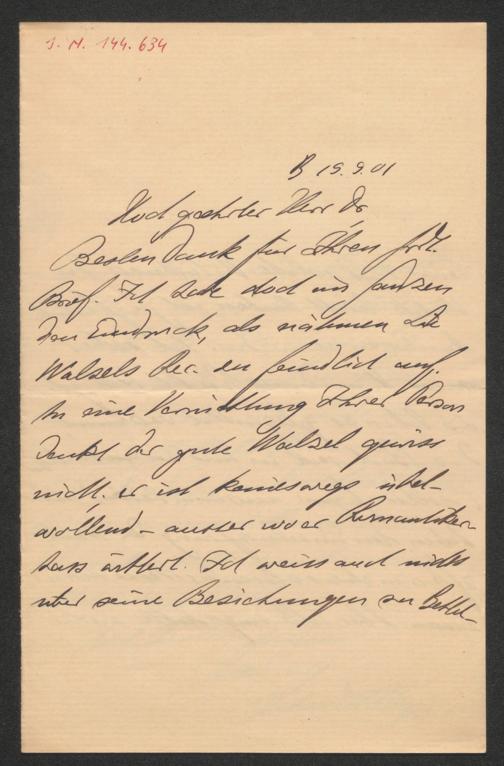 J. N. 144.634
B 19.9.01
Hochgeehrter Herr Dr.
Besten Dank für Ihren frdl.
Brief. Ich habe doch im ganzen
den Eindruck, als nähmen Sie
Walzels Rec. zu feindlich auf.
An eine Vernichtung Ihrer Person
denkt der gute Walzel gewiss
nicht, er ist keineswegs übel-
wollend – ausser wo er Romantiker-
hass wittert. Ich weiss auch nichts
über seine Beziehungen zu Bettel-